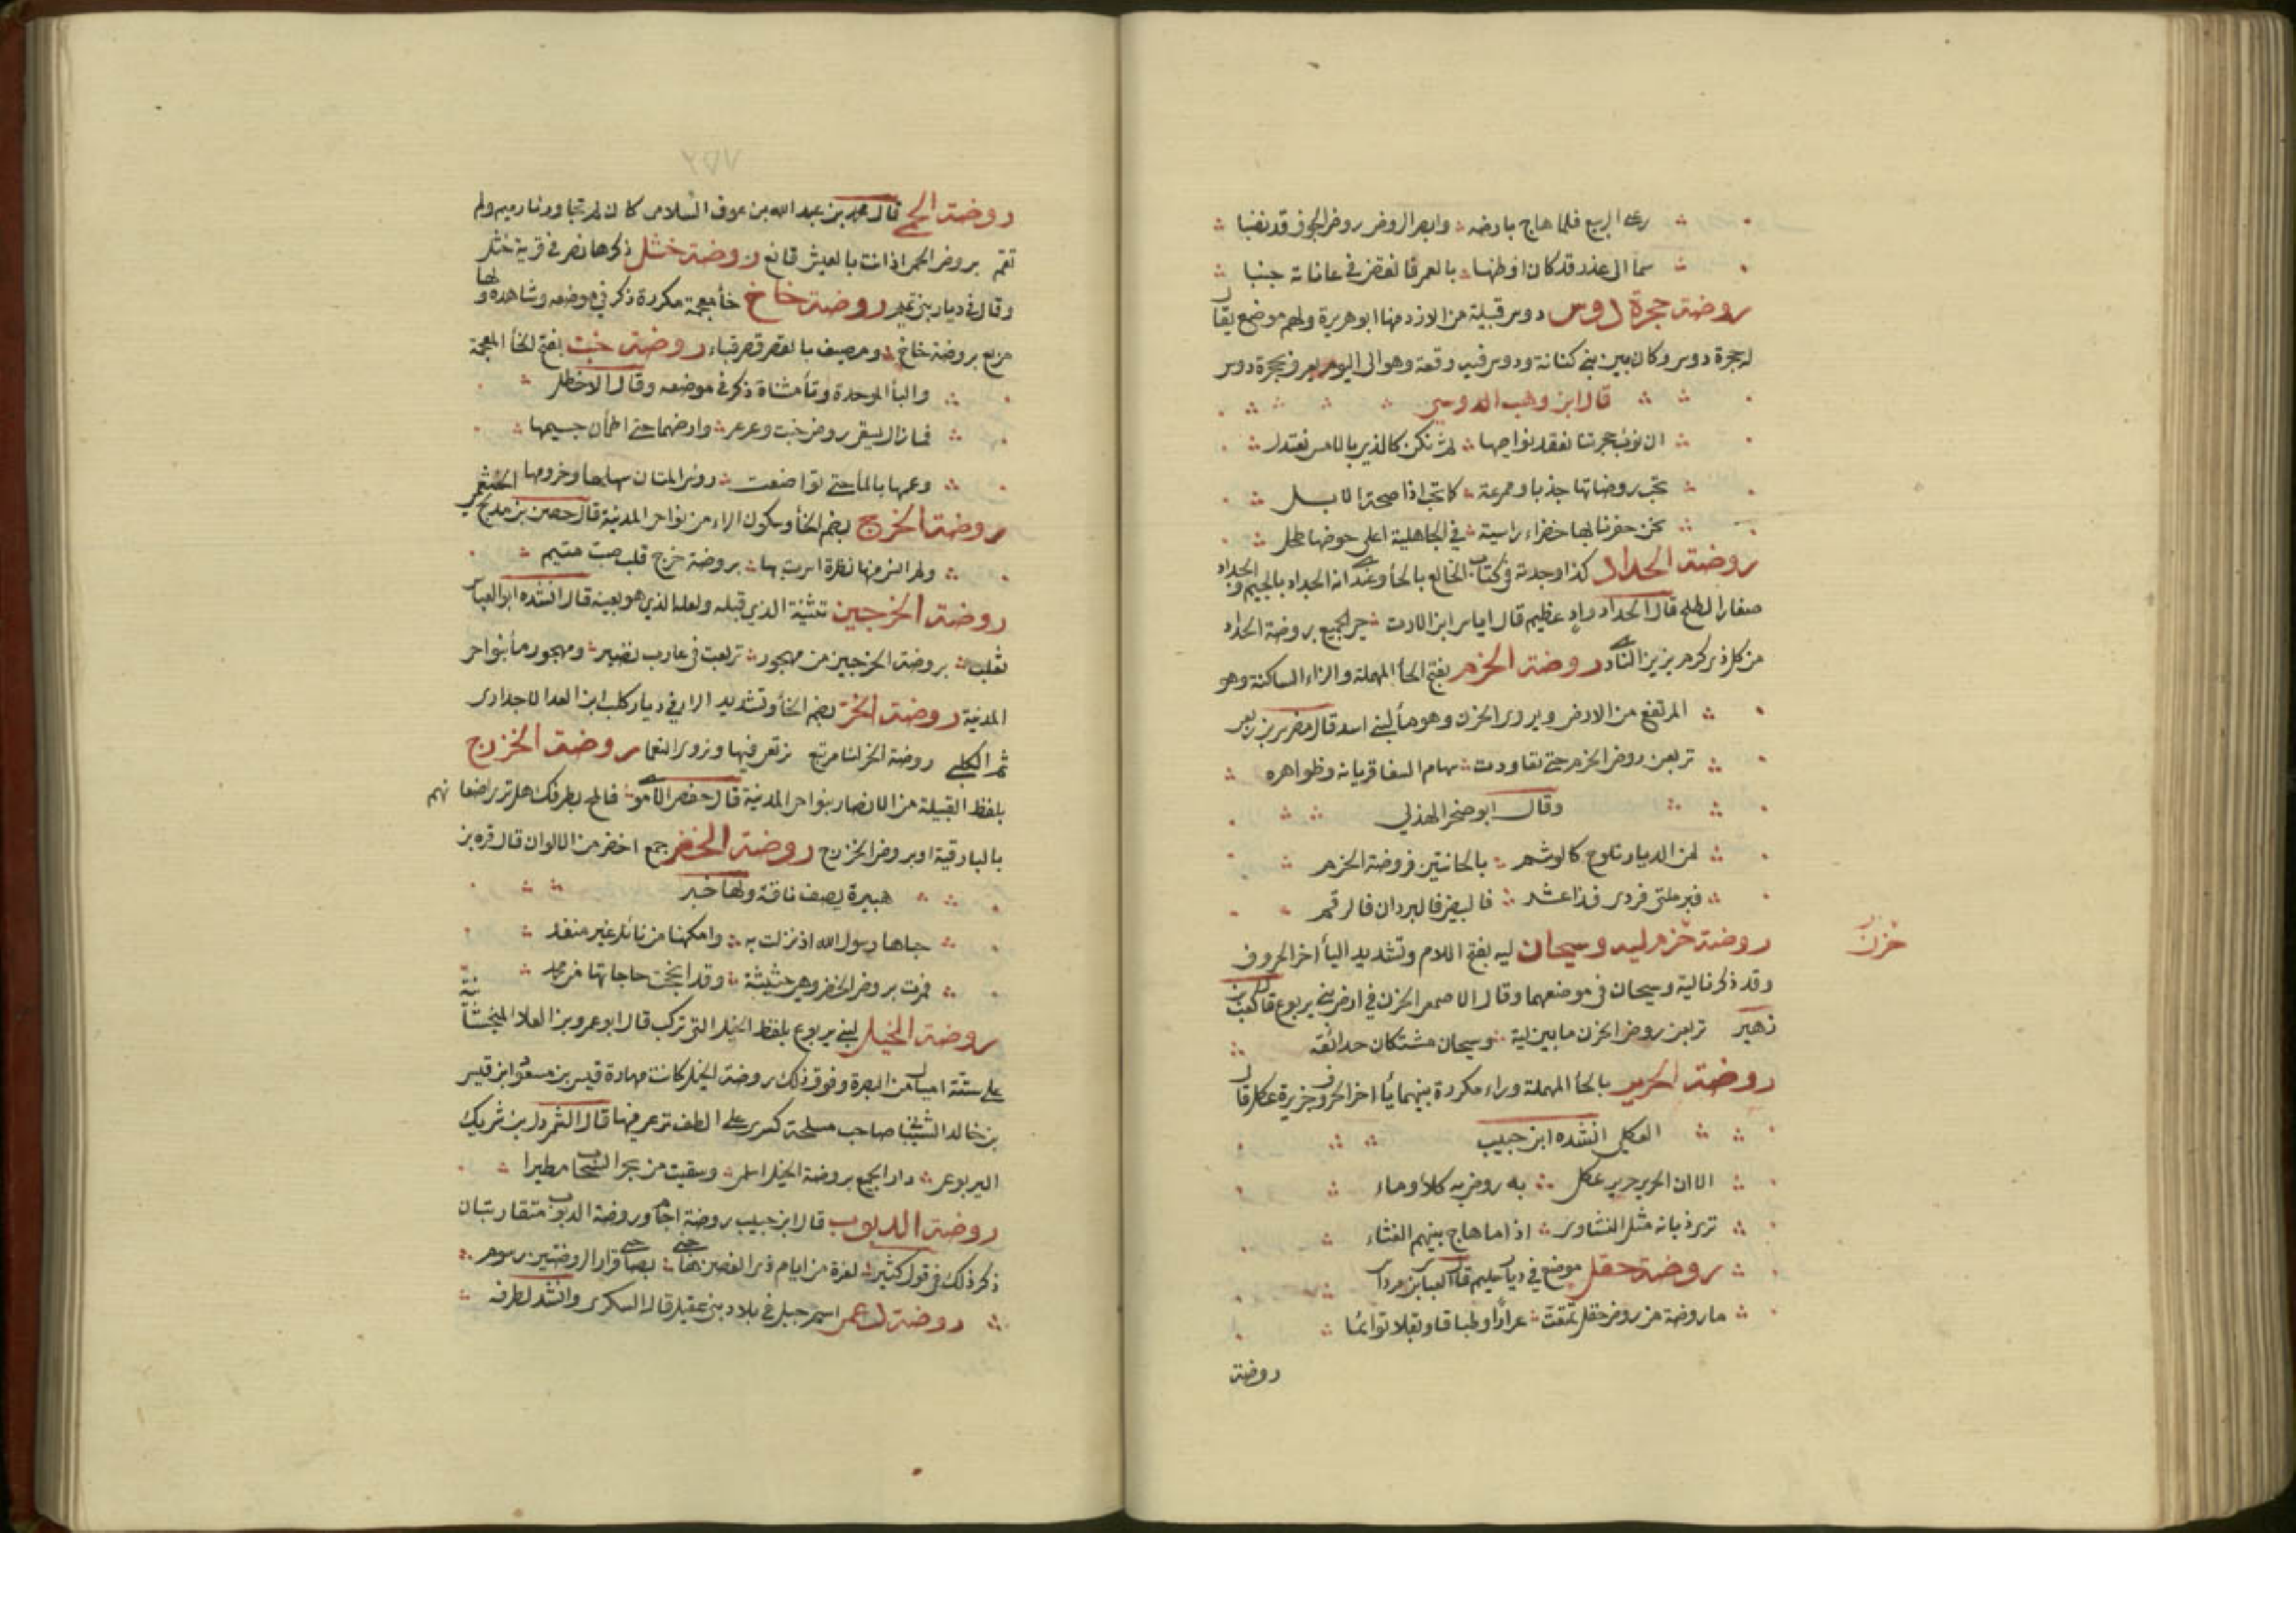 رعى الربيع فلما هاج بارضه وابصر الروض روض الجوف قد نضبا
سما الى عذر قد كان اوطنها بالعمرقا نقض في عانات جنبا
روضة حجرة دوس دوس قبيلة من الازد منها ابو هريرة ولهم موضع يقال
له حجرة دوس وكان بين بني كنانة ودوس فيه وقعة وهو الى اليوم يعرف بحجرة دوس
قال ابن وهب الدوسي
ان نوت حجرتنا نفقد نواصيها ثم نكن كالذي بالامس نعتدل
تحب روضاتها جذبا وممرعة كما تحب اذا صحة الابل
نحن حفرنا بها خضراء راسية في الجاهلية اعلى حوضها طحل
روضة الحداد كذا وجدته في كتاب الخالع بالحا وعندي انه الجداد بالجيم والجداد
صغار الطلح قال الحداد واد عظيم قال اياس ابن الارت حي الجميع بروضة الحداد
من كل ذي كرم يزين النادي روضة الحزم بفتح الحا المهملة والزاء الساكنة وهو
المرتفع من الارض ويروى الحزن وهو ما لبني اسد قال مضرس بن ربعي
تربعن روض الحزم حتى تعاودت سهام السفا قريانه وظواهره
وقال ابو صخر الهذلي
لمن الديار تلوح كالوشم بالحانتين فروضة الحزم
فبرملتي فردى فذا عشر فالبيض فالبردان فالرقم
حزن
روضة حزم ليه وسيحان ليه بفتح اللام وتشديد اليا اخر الحروف
وقد ذكرنا لية وسيحان في موضعهما وقال الاصمعي الحزن في ارض بني يربوع قال كعب بن
زهير تربعن روض الحزن ما بين لية وسيحان مشتكان حدائقه
روضة الحرير بالحا المهملة وراء مكررة بينهما يا اخر الحروف جزيرة عكل قال
العكلي انشده ابن حبيب
الا ان الحرير حرير عكل به روض به كلا وماء
ترى ذبانه مثل النشاوى اذا ما هاج بينهم الغثاء
روضة حقل موضع في ديار سليم قال العباس بن مرداس
ما روضة من روض حقل تمتعت عرارا وطباقا وبقلا توائما
روضة
٧٥٢
روضة الحمى قال محمد بن عبد الله بن عوف السلامي كان لم تجاورنا رميم ولم
تقم بروض الحمى اذ انت بالعيش قانع روضة خثل ذكرها نصر في قرية خثل
وقال في ديار بني تميم روضة خاخ خا معجمة مكررة ذكر في موضعه وشاهده ولها
مربع بروضة خاخ ومصيف بالقصر قصر قباء روضة خبت بفتح الخا المعجمة
والبا الموحدة وتا مثناة ذكر في موضعه وقال الاخطل
فما زال يسقي روض خبت وعرعر وارضهما حتى اطمأن جسيمها
وعمها بالما حتى تواضعت رؤس المتان سهلها وحزومها
روضة الخرج بضم الخا وسكون الراء من نواحي المدينة قال حصن بن مدلج الخثعمي
ولم انس منها نظرة اسرت بها بروضة خرج قلب صب متيم
روضة الخرجين تثنية الذي قبله ولعله الذي هو بعينه قال انشده ابو العباس
ثعلب بروضة الخرجين من مهجور تربعت في عازب نضير ومهجور ما بنواحي
المدينة روضة الخر بضم الخا وتشديد الرا في ديار كلب ابن العدا الاجداري
ثم الكلبي روضة الخر لنا مرتبع نرتعي فيها ونروي النعما روضة الخزرج
بلفظ القبيلة من الانصار بنواحي المدينة قال حفص الاموي فالمح بطرفك هل ترى اضعانهم
بالبارقية او بروض الخزرج روضة الخضر جمع اخضر من الالوان قال قره بن
هبيرة يصف ناقة ولها خبر
حباها رسول الله اذ نزلت به وامكنها من نائل غير منفد
فمرت بروض الخضر وهي حثيثة وقد انجحت حاجاتها من محمد
روضة الخيل لبني يربوع بلفظ الخيل التي تركب قال ابو عمرو بن العلا المنجشانية
على ستة اميال من البصرة وفوق ذلك روضة الخيل كانت مهادة قيس بن مسعود ابن قيس
بن خالد الشيبانيا صاحب مسلحة كسرى على الطف ترعى فيها قال الشمردل بن شريك
اليربوعي دار الجميع بروضة الخيل اسلمي وسقيت من بحر السحاب مطيرا
روضة الدبوب قال ابن حبيب روضة اجام وروضة الدبوب متقاربتان
ذكر ذلك في قول كثير لعزة من ايام ذي الغصن هاجني بضاحي قرار الروضتين رسوم
روضة دعمي اسم جبل في بلاد بني عقيل قال السكري وانشد لطرفه